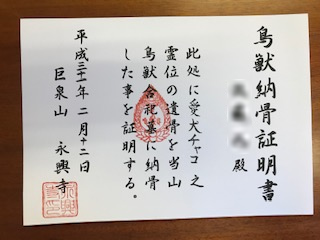 鳥獣納骨証明書
殿
此処に愛犬チャコ之
霊位の遺骨を当山
鳥獣合祀墓に納骨
した事を証明する。
平成三十一年二月十二日
巨泉山 永興寺